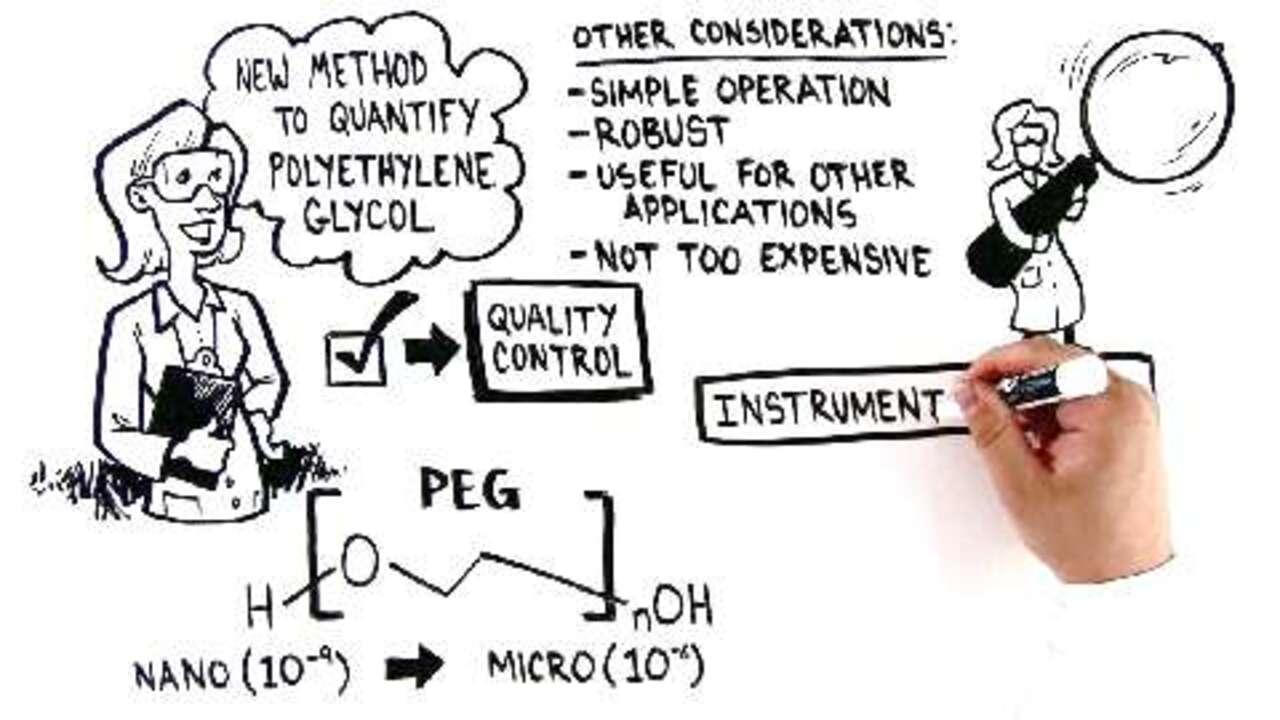 NEW METHOD
TO QUANTIFY
POLYETHYLENE
GLYCOL
OTHER CONSIDERATIONS:
-SIMPLE OPERATION
-ROBUST
-USEFUL FOR OTHER
APPLICATIONS
-NOT TOO EXPENSIVE
QUALITY
CONTROL
INSTRUMENT
PEG
H
O
nOH
NANO (10⁻⁹)
MICRO (10⁻⁶)